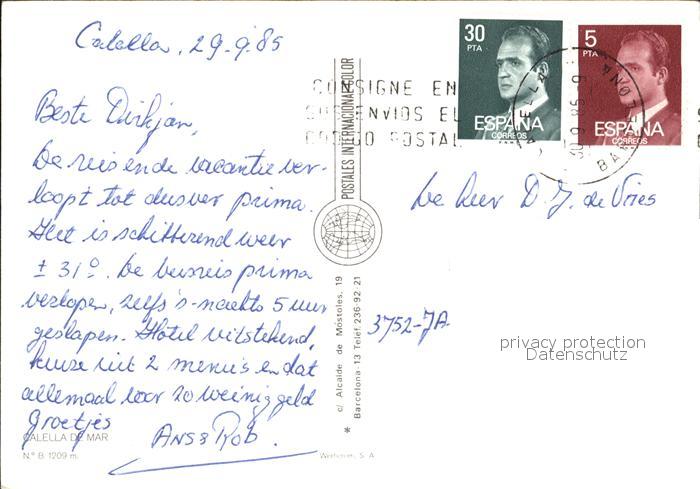 Calella, 29-9-85
Beste Dirkjan,
De reis en de vacantie ver-
loopt tot dusver prima.
Het is schitterend weer
± 31°. De busreis prima
verlopen, zelfs 's-nachts 5 uur
geslapen. Hotel uitstekend,
keuze uit 2 menu's en dat
allemaal voor zo weinig geld
Groetjes
Ans & Rob.
CALELLA DE MAR
N.° B. 1209 m.
POSTALES INTERNACIONAL COLOR
c/ Alcalde de Móstoles, 19
Barcelona-13 Teléf. 236-92-21
*
30
PTA
ESPAÑA
CORREOS
5
PTA
ESPAÑA
CORREOS
CONSIGNE EN
SUS ENVIOS EL
CODIGO POSTAL
De Heer D. J. de Vries
3752-JA
privacy protection
Datenschutz